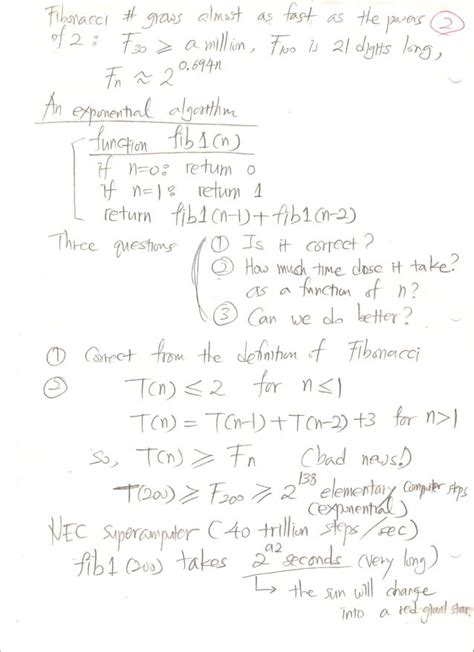 Fibonacci # grows almost as fast as the powers ②
of 2 : F₃₀ ≥ a million, F₁₀₀ is 21 digits long,
Fₙ ≈ 2^0.694n
An exponential algorithm
function fib1(n)
if n=0: return 0
if n=1: return 1
return fib1(n-1)+fib1(n-2)
Three questions ① Is it correct?
② How much time dose it take?
as a function of n?
③ Can we do better?
① Correct from the definition of Fibonacci
② T(n) ≤ 2 for n≤1
T(n) = T(n-1)+T(n-2)+3 for n>1
So, T(n) ≥ Fn (bad news!)
T(200) ≥ F₂₀₀ ≥ 2^138 elementary computer steps
(exponential)
NEC Supercomputer (40 trillion steps/sec)
fib1(200) takes 2^92 seconds (very long)
↳ the sun will change
into a red giant star.